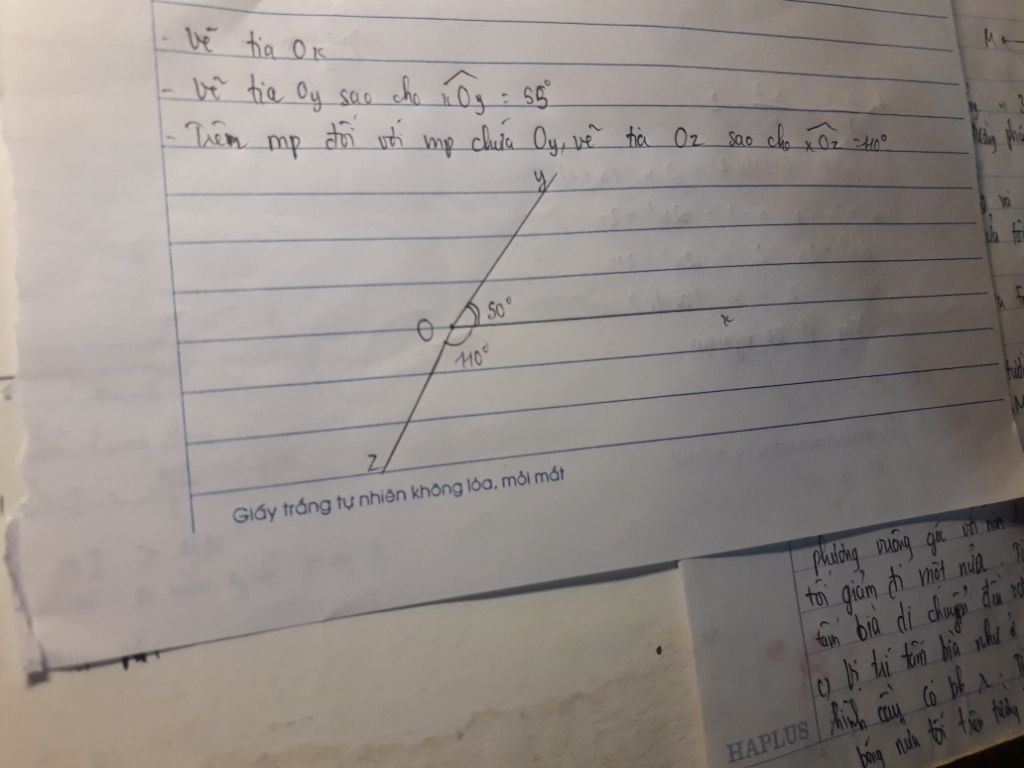 - Vẽ tia Ox
- Vẽ tia Oy sao cho xOy = 55°
- Trên mp đối với mp chứa Oy, vẽ tia Oz sao cho xOz = 110°
y
50°
O
x
110°
z
Giấy trắng tự nhiên không lóa, mỏi mắt
M
phương vuông góc với màn
tối giảm đi một nửa.
tấm bìa di chuyển đến
c) Vị trí tấm bìa như ở
hình câu
bóng nửa tối trên tường
HAPLUS